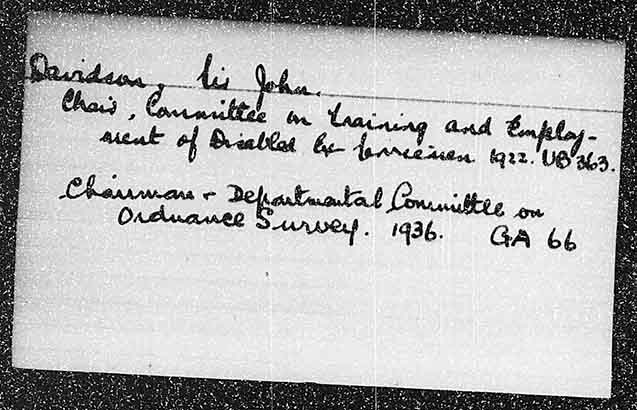 Davidson, Sir John.
Chair, Committee on Training and Employ-
ment of Disabled Ex Servicemen 1922. UB 363.
Chairman - Departmental Committee on
Ordnance Survey. 1936. GA 66